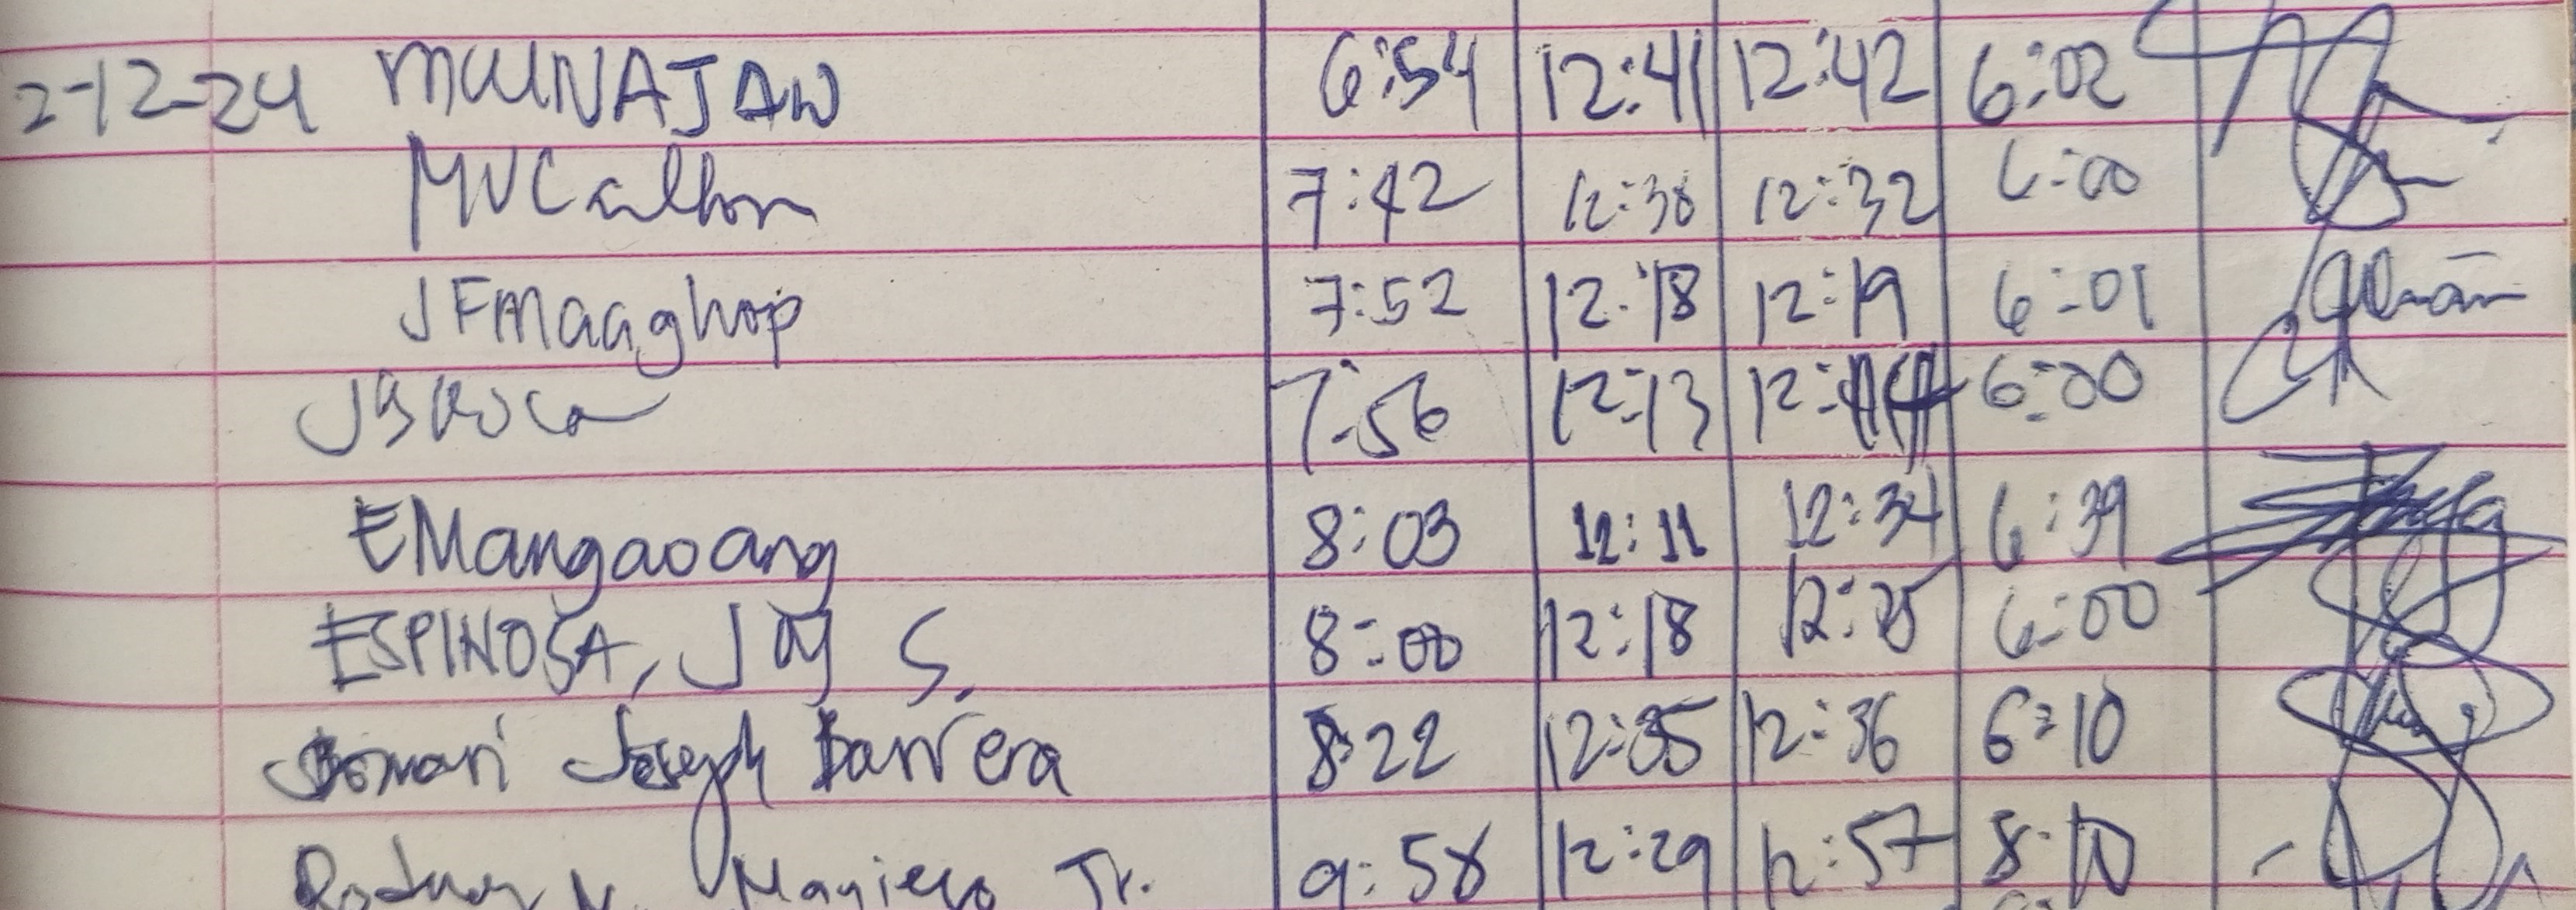 2-12-24 MWNAJAW 6:54 12:41 12:42 6:02
7:42 12:38 12:32 6:00
JFMaaghop 7:52 12:18 12:19 6:01
7:56 12:13 12: 6:00
EMangaoang 8:03 12:11 12:34 6:39
ESPINOSA, Joy S. 8:00 12:18 12:25 6:00
Jomari Joseph Barrera 8:22 12:35 12:36 6:10
Jr. 9:58 12:29 12:57 8:10